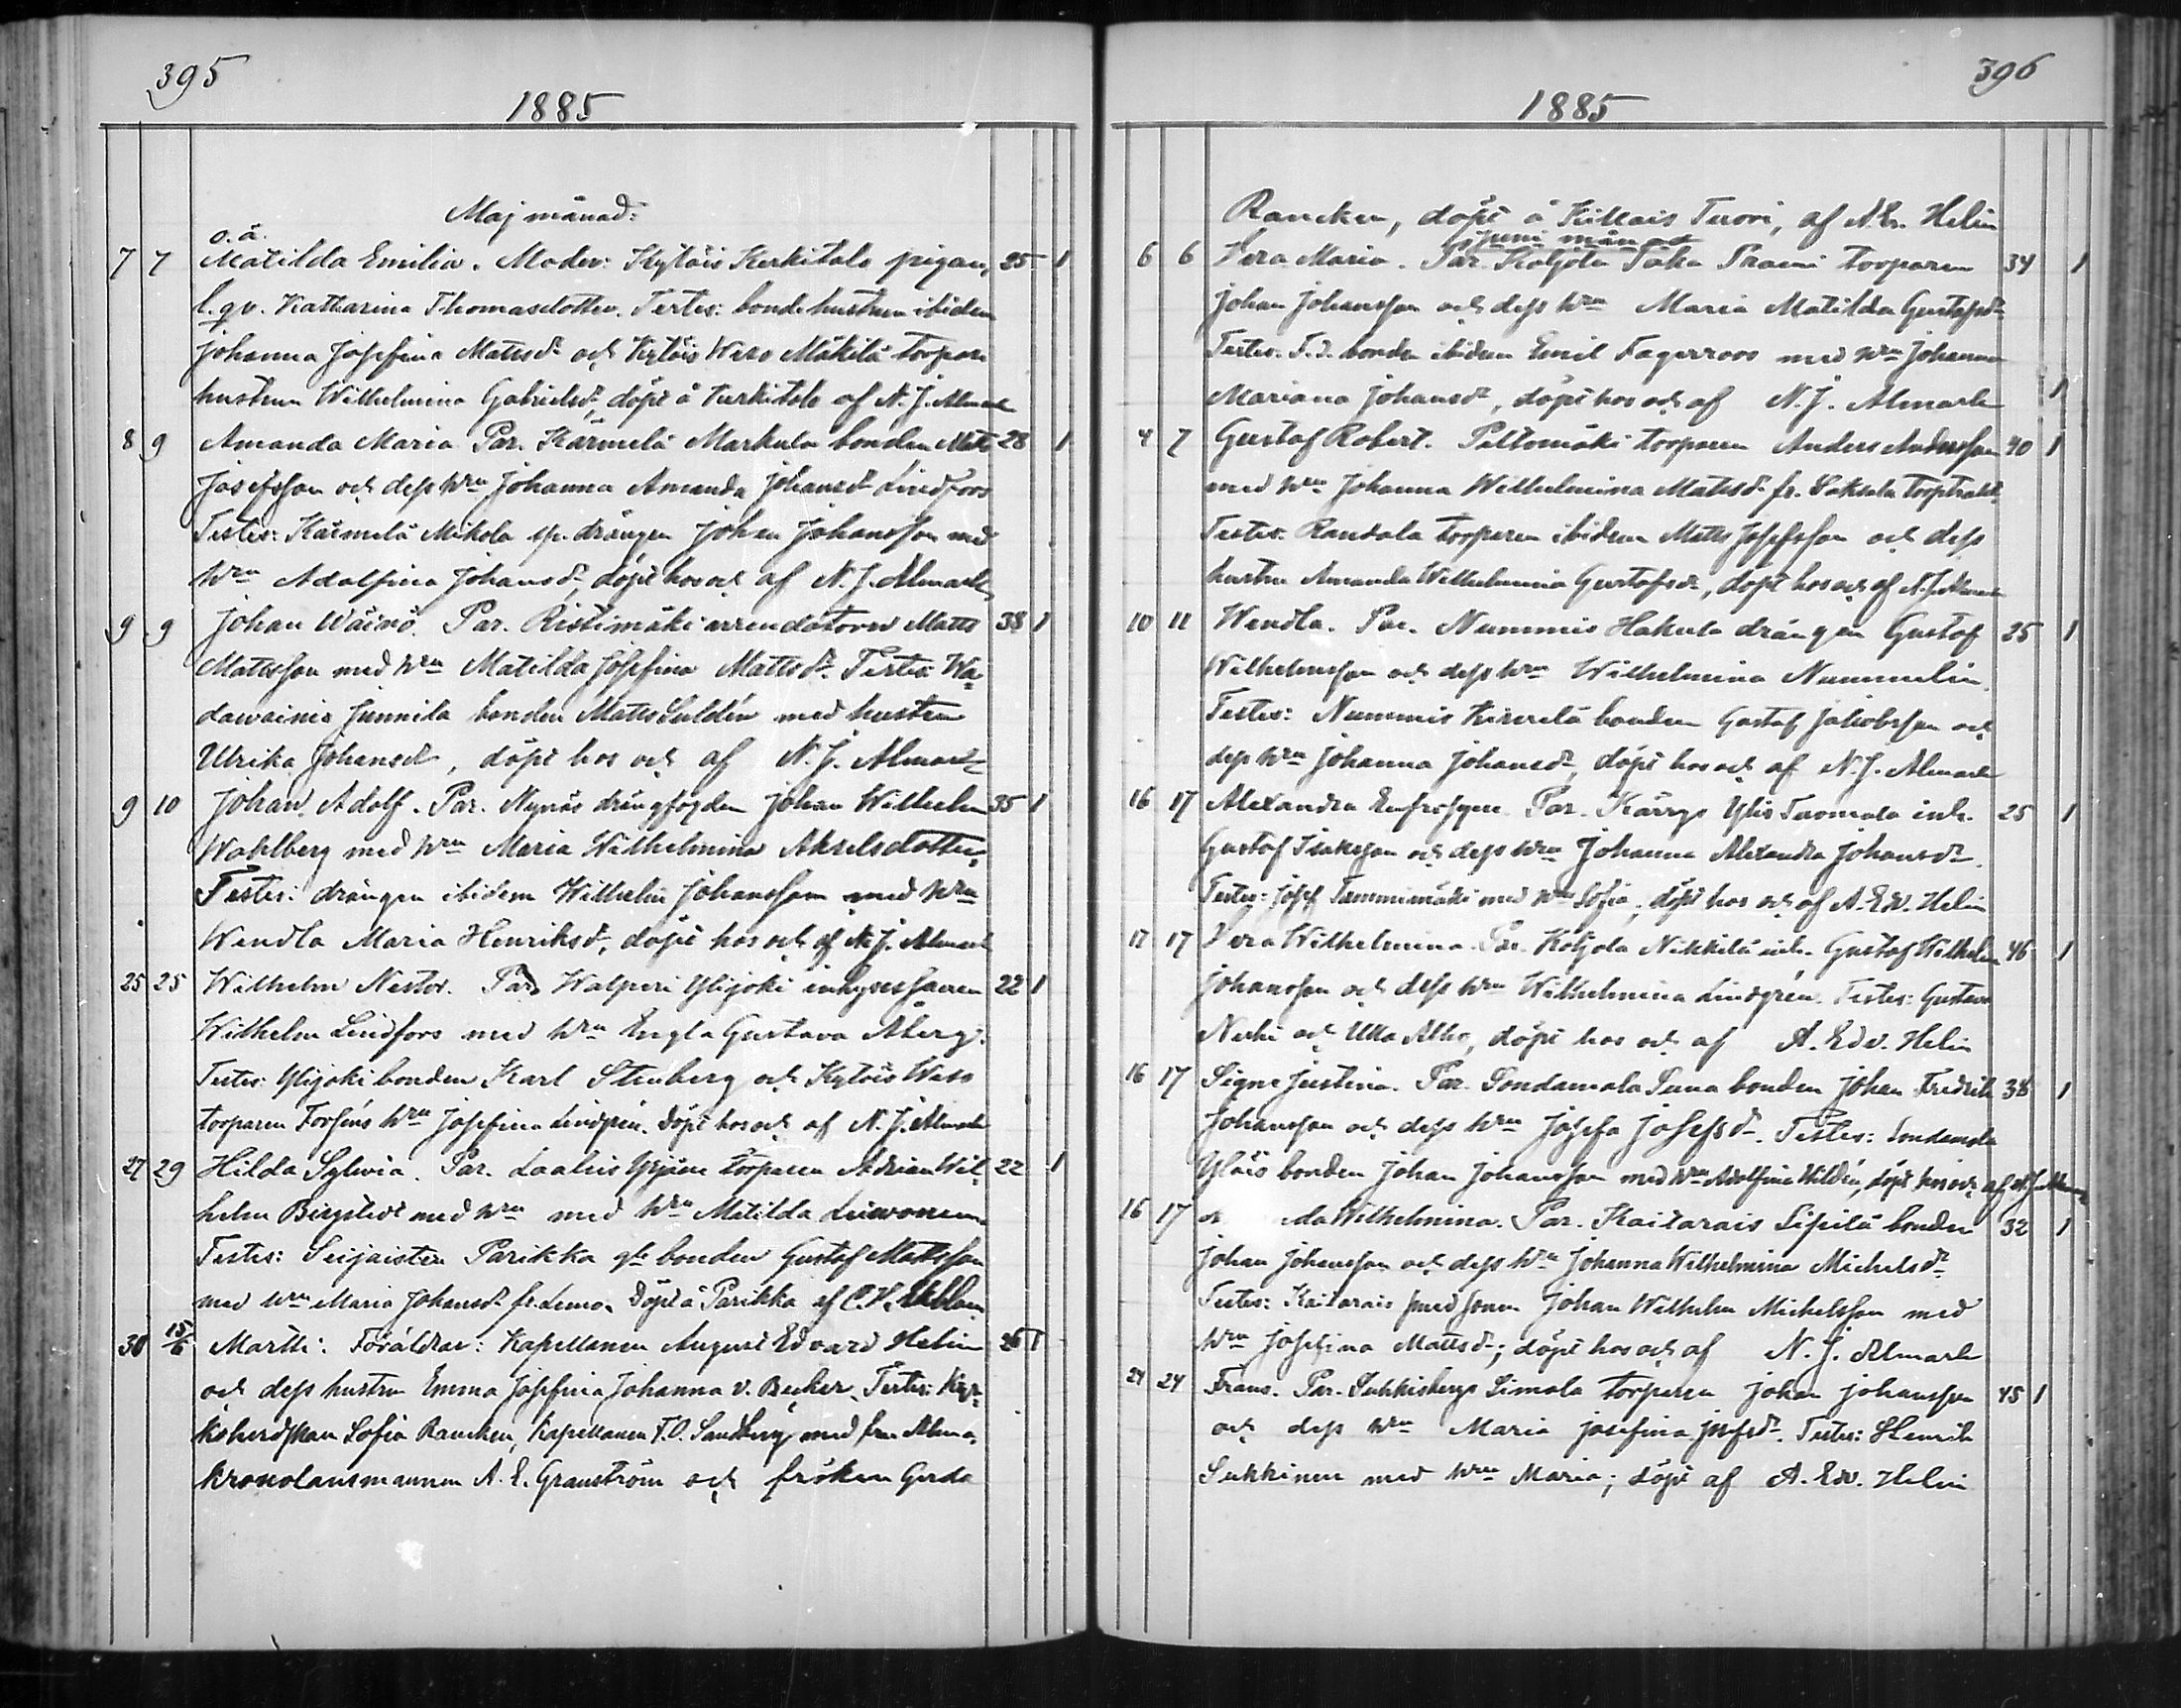 395
1885
Maj månad:
o. ä.
7 7 Matilda Emilia. Moder: Kytöis Kerkitalo pigan, 25 1
l. qv. Katharina Thomasdotter. Testes: bondehustrun ibidem
Johanna Josefina Mattsdr och Kytöis Wero Mäkilä torpare
hustrun Wilhelmina Gabrielsdr, döpt å Kerkitalo af N. J. Almark
8 9 Amanda Maria Par. Kärmelä Markula bonden Matts 28 1
Josefsson och dess hru Johanna Amanda Johansdr Lindfors
Testes: Kärmelä Mikola sp. drängen Johan Johansson med
hru Adolfina Johansdr, döpt hos och af N. J. Almark
9 9 Johan Wäinö. Par. Ristimäki arrendatorn Matts 38 1
Mattsson med hru Matilda Josefina Mattsdr. Testes: Wa-
dawainio Junnila bonden Matts Suldén med hustru
Ulrika Johansdr, döpt hos och af N. J. Almark
9 10 Johan Adolf. Par. Mynäs drängfogden Johan Wilhelm 35 1
Wahlberg med hru Maria Wilhelmina Akselsdotter,
Testes: drängen ibidem Wilhelm Johansson med hru
Wendla Maria Henriksdr, döpt hos och af N. J. Almark
25 25 Wilhelm Nestor. Par. Walperi Ylijoki inhysessonen 22 1
Wilhelm Lindfors med hru Engla Gustava Åberg.
Testes: Ylijoki bonden Karl Stenberg och Kytöis Wess
torparen Forséns hru Josefina Lindgren. Döpt hos och af N. J. Almark
27 29 Hilda Sylvia. Par. Laalis Yrjänä torparen Adrian Wil- 22 1
helm Bergstedt med hru med hru Matilda Leiwonen
Testes: Seijaisten Parikka gle bonden Gustaf Mattsson
med hru Maria Johansdr fr. Lemo. Döpt å Parikka af C. V. Ekblom
30 15/6 Martti: Föräldrar: Kapellanen August Edvard Helin 26 1
och dess hustru Emma Josefina Johanna v. Becker. Testes: Kyr-
koherdskan Sofia Rancken, Kapellanen F. O. Sandberg med fru Alma,
kronolänsmannen A. E. Granström och fröken Gerda
396
1885
Rancken, döpt å Killais Turori, af A. E. Helin
Juni månad
6 6 Vera Maria. Par. Kotjola Taka Prami torparen 34 1
Johan Johansson och dess hru Maria Matilda Gustafsdr
Testes: F.d. bonden ibidem Emil Fagerroos med hru Johanna
Mariana Johansdr, döpt hos och af N. J. Almark 1
4 7 Gustaf Robert. Peltomäki torparen Anders Andersson 40 1
med hru Johanna Wilhelmina Mattsdr fr. Saksala torptrakt,
Testes: Randala torparen ibidem Matts Josefsson och dess
hustru Amanda Wilhelmina Gustafsdr, döpt hos och af N. J. Almark
10 11 Wendla. Par. Nummis Hakula drängen Gustaf 25 1
Wilhelmsson och dess hru Wilhelmina Nummelin.
Testes: Nummis bonden Gustaf Jakobsson och
dess hru Johanna Johansdr, döpt hos och af N. J. Almark
16 17 Alexandra Par. Kärrys Ylis Tuomola inh. 25 1
Gustaf Isaksson och dess hru Johanna Alexandra Johansdr.
Testes: Josef Tamminmäki med hru Sofia, döpt hos och af A. Edv. Helin
17 17 Vera Wilhelmina. Par. Kotjola Nikkilä inh. Gustaf Wilhelm 46 1
Johansson och dess hru Wilhelmina Lindgren. Testes: Gustava
och Ulla Alho, döpt hos och af A. Edv. Helin
16 17 Signe Justina. Par. Sondamala Puna bonden Johan Fredrik 38 1
Johansson och dess hru Josefa Josefsdr. Testes: Sondamala
Yläis bonden Johan Johansson med hru Adolfina Wildén, döpt hos och af N. J. Almark
16 17 da Wilhelmina. Par. Kaitarais Sipilä bonden 32 1
Johan Johansson och dess hru Johanna Wilhelmina Michelsdr
Testes: Kaitarais smedsonen Johan Wilhelm Michelsson med
hru Josefina Mattsdr; döpt hos och af N. J. Almark
24 24 Frans. Par. Sukkisbergs Simola torparen Johan Johansson 45 1
och dess hru Maria Josefina Josefsdr. Testes: Henrik
Sukkinen med hru Maria; döpt af A. Edv. Helin